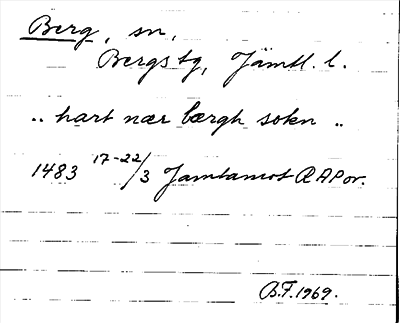 Berg, sn,
Bergs tg, Jämtl. l.
.. hart nær bærgh sokn ..
1483 17-22/3 Jamtamot RAPor.
B.F. 1969.